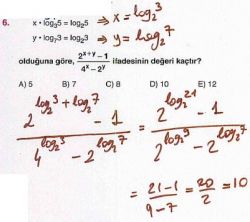 6. x·log₃5 = log₂5 ⇒ x = log₂3
y·log₇3 = log₂3 ⇒ y = log₂7
olduğuna göre, (2^(x+y) − 1)/(4^x − 2^y) ifadesinin değeri kaçtır?
A) 5 B) 7 C) 8 D) 10 E) 12
(2^(log₂3 + log₂7) − 1)/(4^(log₂3) − 2^(log₂7)) = (2^(log₂21) − 1)/(2^(log₂9) − 2^(log₂7))
= (21−1)/(9−7) = 20/2 = 10